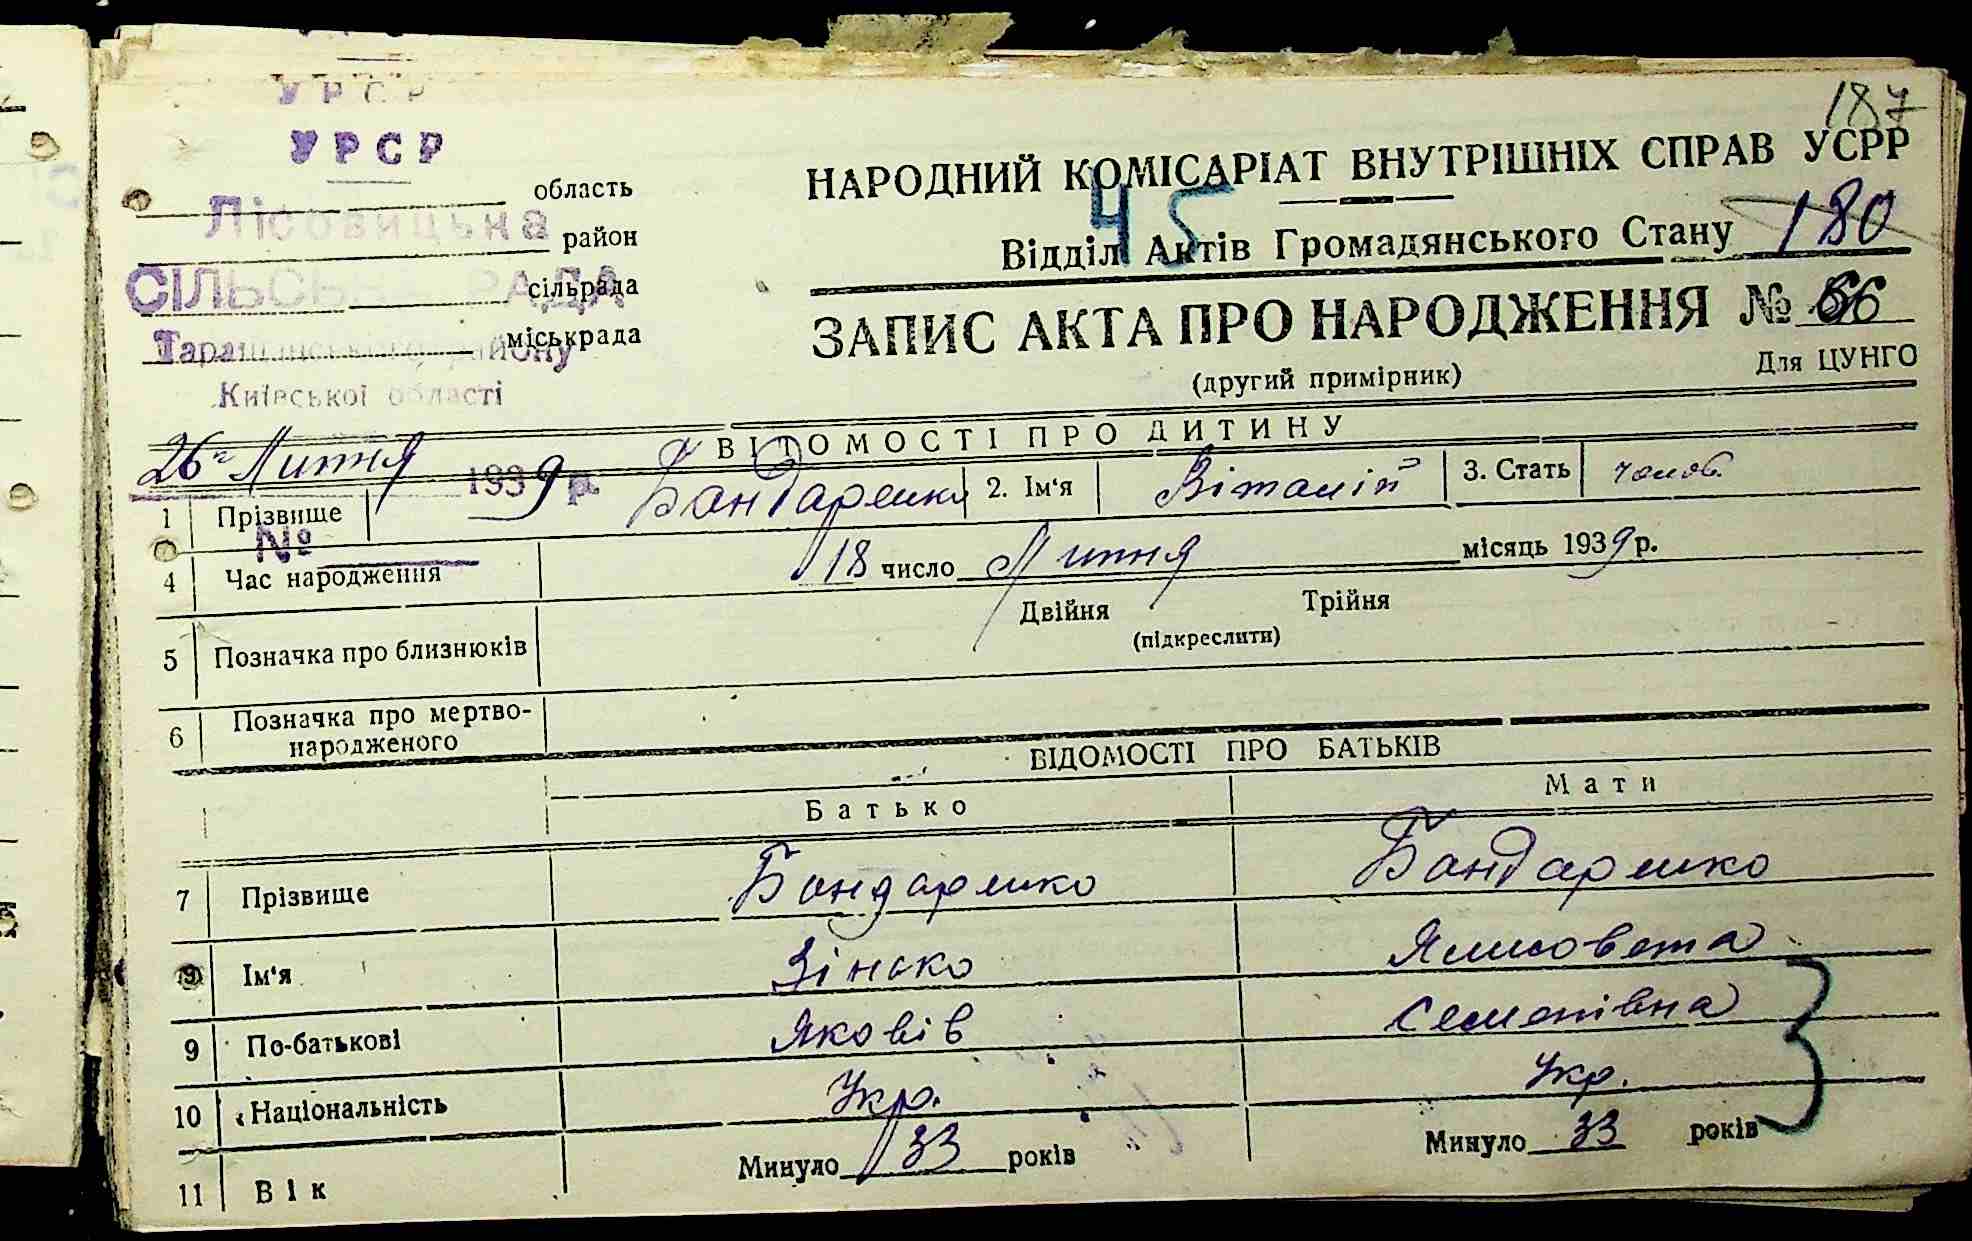 187
УРСР
УРСР
Лісовицька
СІЛЬСЬКА РАДА
Таращанського району
Київської області
область
район
сільрада
міськрада
НАРОДНИЙ КОМІСАРІАТ ВНУТРІШНІХ СПРАВ УСРР
45
Відділ Актів Громадянського Стану 180
ЗАПИС АКТА ПРО НАРОДЖЕННЯ № 66
(другий примірник) Для ЦУНГО
26 Липня 1939 р.
№
ВІДОМОСТІ ПРО ДИТИНУ
1 Прізвище Бондаренко 2. Ім'я Віталій 3. Стать чолов.
4 Час народження 18 число Липня місяць 1939 р.
5 Позначка про близнюків Двійня Трійня
(підкреслити)
6 Позначка про мертво-
народженого
ВІДОМОСТІ ПРО БАТЬКІВ
Батько Мати
7 Прізвище Бондаренко Бондаренко
9 Ім'я Зінько Ялисовета
9 По-батькові Яковів Семенівна
10 Національність Укр. Укр.
11 Вік Минуло 33 років Минуло 33 років
3